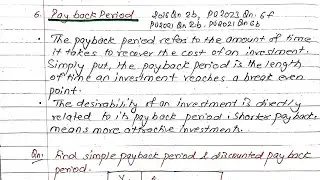 6. Payback Period 2016 Qn 2b, PU2023 Qn. 5f
PU2021 Qn 2b. PU2021 Qn 6b
• The payback period refers to the amount of time
it takes to recover the cost of an investment.
Simply put, the payback period is the length
of time an investment reaches a break even
point.
• The desirability of an investment is directly
related to its payback period. Shorter payback
means more attractive investments.
Qn: Find simple payback period & discounted pay back
period.